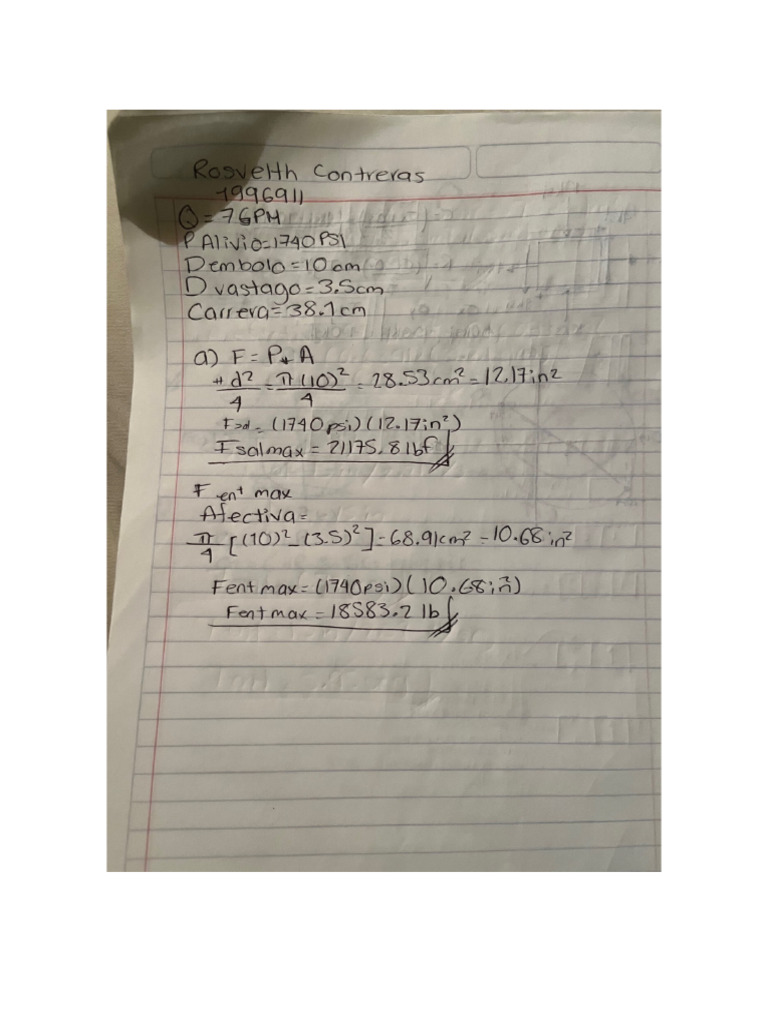 Rosvelth Contreras
1996911
Q = 7GPM
P Alivio=1740PSI
D embolo = 10 cm
D. vastago = 3.5cm
Carrera = 38.1 cm
a) F = P * A
π d²/4 = π(10)²/4 = 78.53cm² = 12.17in²
Fsal = (1740psi)(12.17in²)
Fsalmax = 21175.8 lbf
F ent max
Afectiva =
π/4 [(10)² - (3.5)²] = 68.91cm² = 10.68 in²
Fentmax = (1740psi)(10.68in²)
Fentmax = 18583.2 lbf